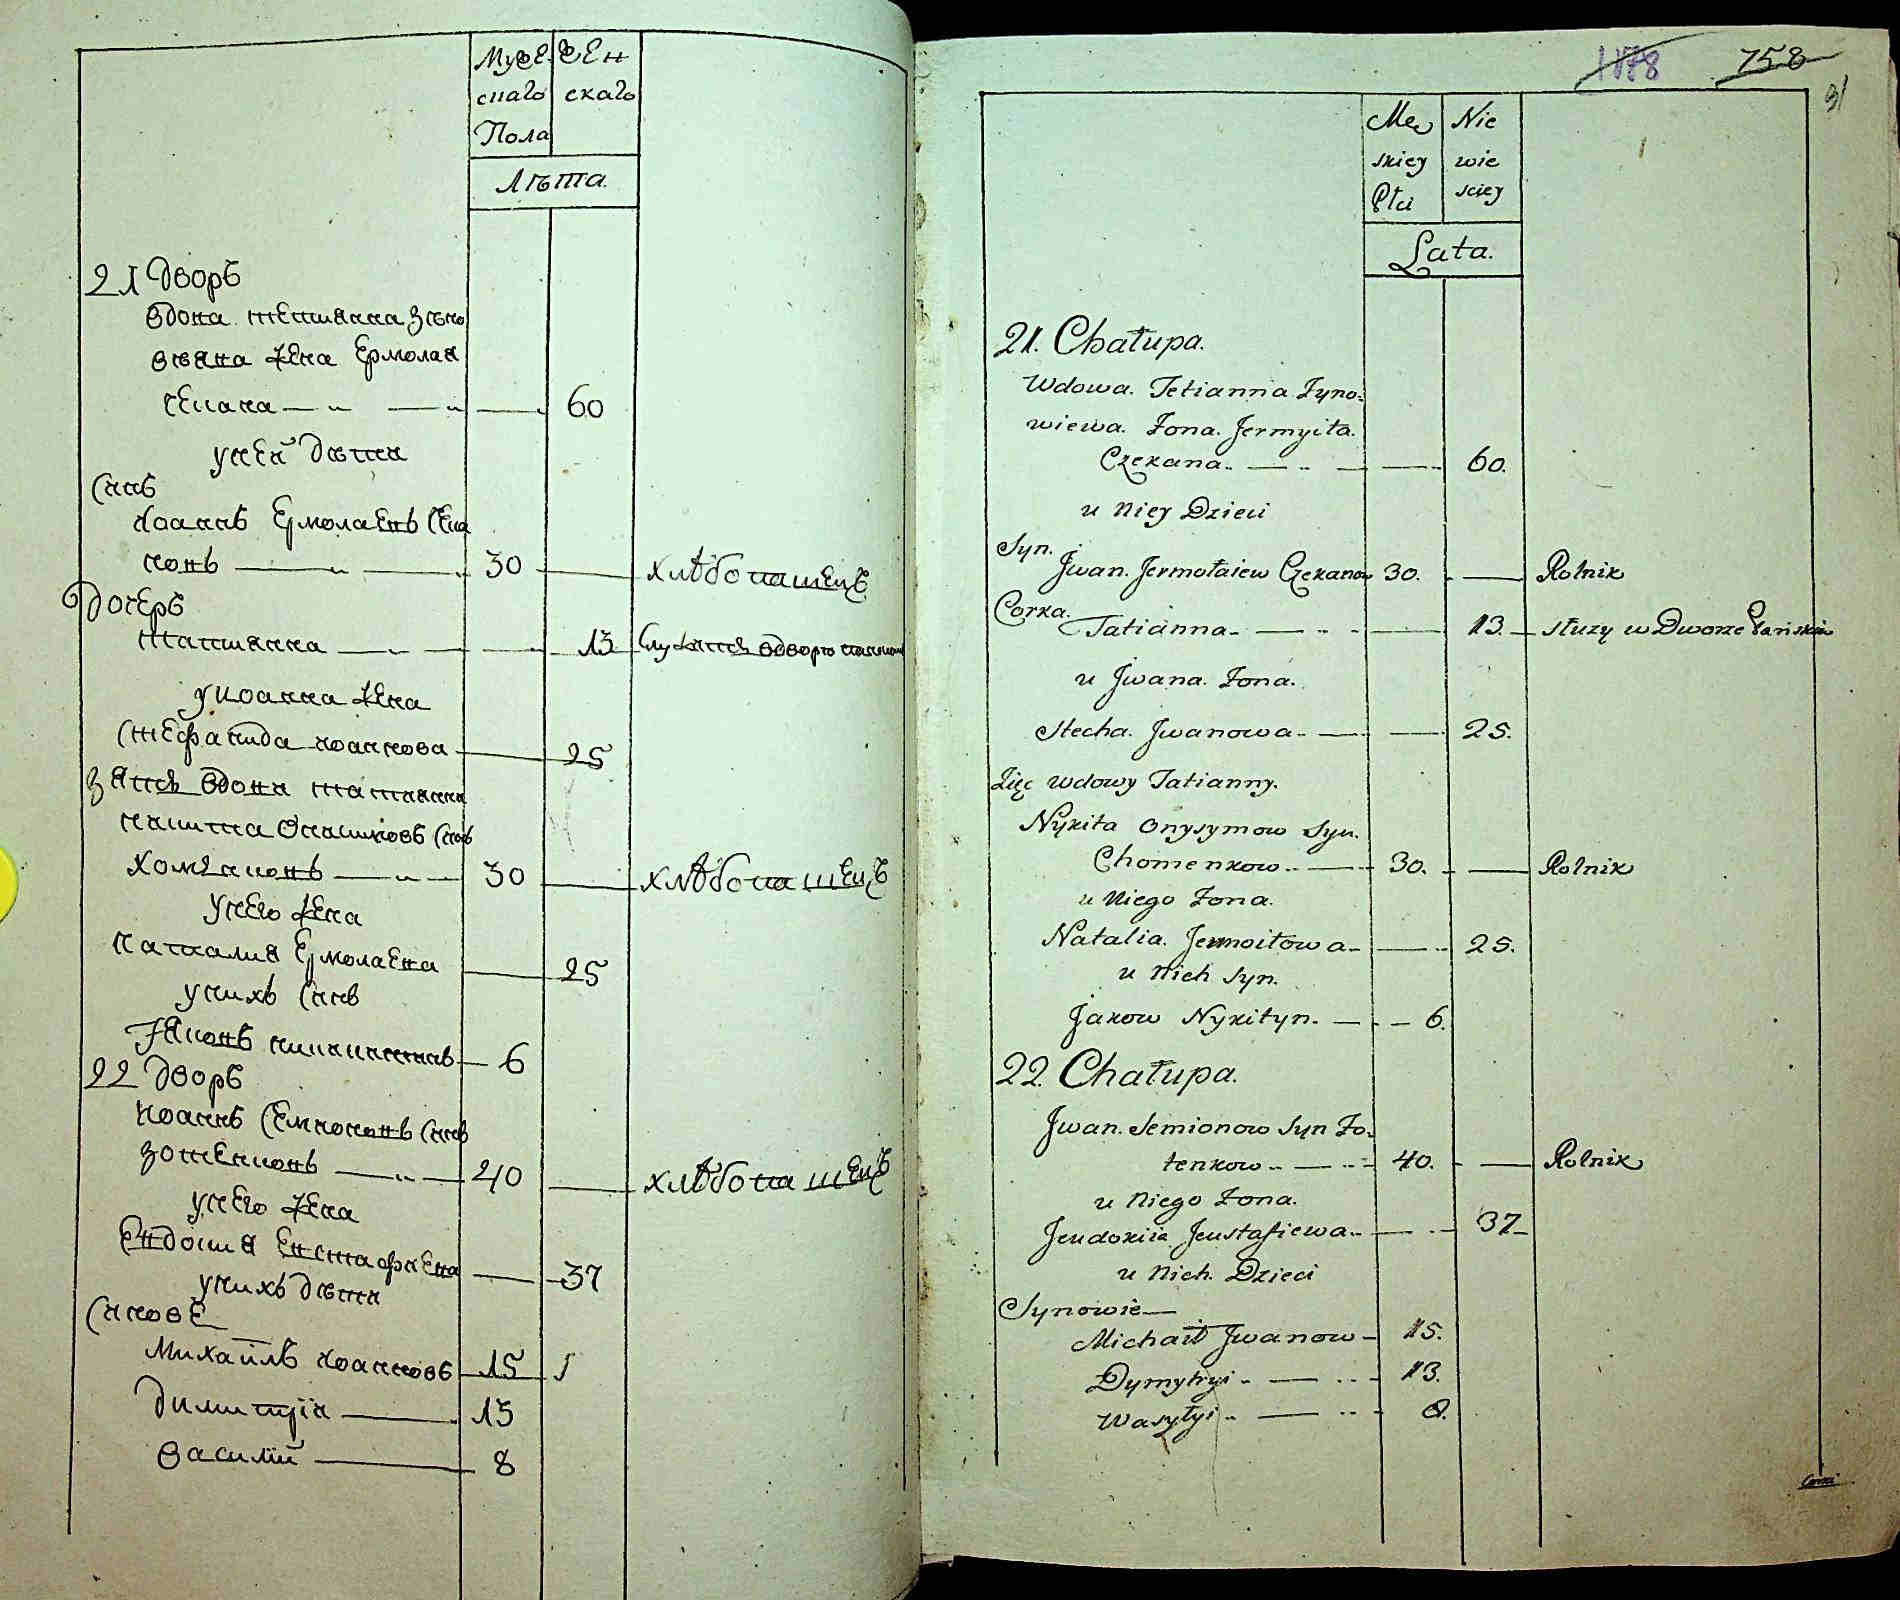 Муже Жен
скаго скаго
Пола
Лѣта.
21 Дворъ
вдова тетиянна зѣно
вѣева жена Ермолая
чекана 60
уней дѣти
Синъ
Иоаннъ Ермолаевъ Чека
новъ 30 хлѣбопашецъ
Дочеръ
татиянна 13 Служитъ вдворѣ панском
уиоанна жена
Стефанида иоаннова 25
Зять вдови татиянни
никита Онисимовъ Синъ
хоменковъ 30 хлѣбопашецъ
унего жена
наталия Ермолаева 25
унихъ Синъ
Яковъ никитинъ 6
22 Дворъ
Иоаннъ Семионовъ Синъ
зотенковъ 40 хлѣбопашецъ
унего жена
Евдокия Евстафиева 37
унихъ дѣти
Синове
Михаилъ иоанновъ 15
Димитрїи 13
Василий 8
1878 758
31
Męs Nie
skiey wie
Płci sciey
Lata.
21. Chałupa.
Wdowa. Tetianna Zyno-
wiewa. Zona. Jermyiła.
Czekana. 60.
u Niey Dzieci
Syn.
Jwan. Jermołaiew Czekanow 30. Rolnik
Corka.
Tatianna 13. służy w Dworze Pańskim
u Jwana. Zona.
Stecha. Jwanowa 25.
Zięc wdowy Tatianny.
Nykita Onysymow Syn.
Chomenkow 30. Rolnik
u Niego Zona.
Natalia. Jermoiłowa 25.
u Nich Syn.
Jakow Nykityn. 6.
22. Chałupa.
Jwan. Semionow Syn Zo-
tenkow 40. Rolnik
u Niego Zona.
Jeudokiia Jeustafiewa 37
u Nich. Dzieci
Synowie
Michaił Jwanow 15.
Dymytryi 13.
Wasyłyi 8.
Corki